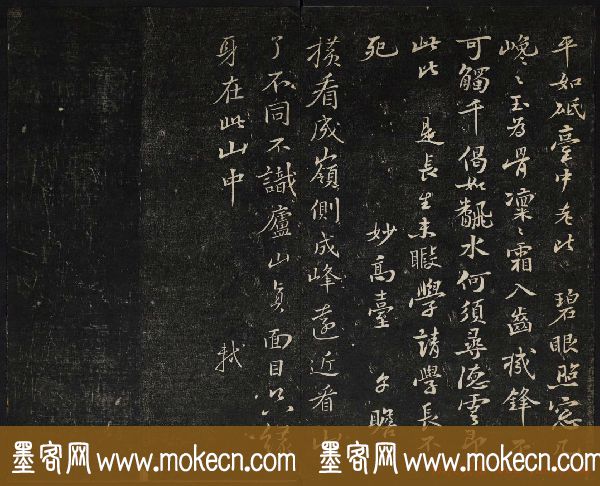 平如砥臺中老比 碧眼照窓几
巉〻玉為骨凛〻霜入齒機鋒不
可觸千偈如飜水何須尋德雲即
此比 是長生未暇學請學長不
死 妙高臺 子瞻
橫看成嶺側成峰遠近看山
了不同不識廬山真面目只緣
身在此山中 軾
墨客网 www.mokecn.com 墨客网 www.mokecn.com